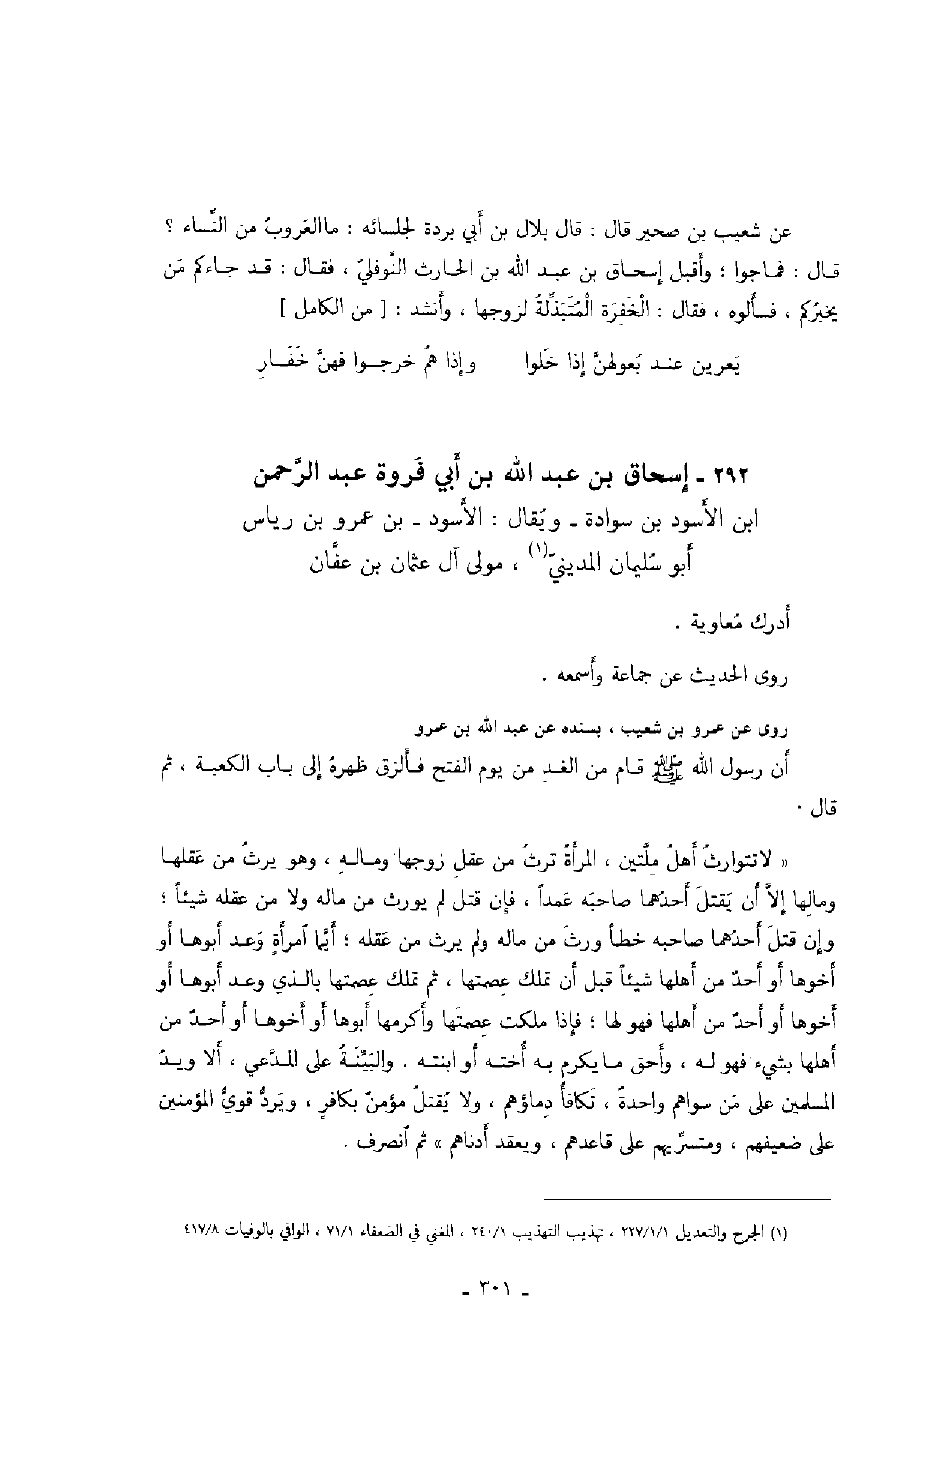 عن شعيب بن صخير قال : قال بلال بن أبي بردة لجلسائه : ما العَروبُ من النِّساء ؟
قال : فماجوا ؛ وأقبل إسحاق بن عبد الله بن الحارث النَّوفليّ ، فقال : قد جاءكم مَن
يخبرُكم ، فسألوه ، فقال : الْخَفِرَة الْمُتَبَذِّلةُ لزوجها ، وأنشد : [ من الكامل ]
يَعرين عند بُعولهنَّ إذا خَلَوا وإذا هُمُ خرجوا فهنَّ خَفَارِ
٢٩٢ - إسحاق بن عبد الله بن أبي فَروة عبد الرَّحمن
ابن الأسود بن سوادة - ويُقال : الأسود - بن عمرو بن رياس
أبو سُليمان المدينيّ(١) ، مولى آل عثمان بن عفَّان
أدرك مُعاوية .
روى الحديث عن جماعة وأسمعه .
روى عن عمرو بن شعيب ، بسنده عن عبد الله بن عمرو
أن رسول الله ﷺ قام من الغد من يوم الفتح فألزق ظهرهُ إلى باب الكعبة ، ثم
قال .
« لا تتوارثُ أهلُ ملَّتين ، المرأةُ ترثُ من عقلِ زوجها ومالهِ ، وهو يرثُ من عَقلها
ومالها إلاَّ أن يَقتلَ أحدُهما صاحبَه عَمداً ، فإن قتل لم يورث من ماله ولا من عقله شيئاً ؛
وإن قتلَ أحدُهما صاحبه خطأً ورثَ من ماله ولم يرث من عَقله ؛ أيّما آمرأةٍ وَعد أبوها أو
أخوها أو أحدٌ من أهلها شيئاً قبل أن تملك عِصمتها ، ثم تملك عِصمتها بالذي وعد أبوها أو
أخوها أو أحدٌ من أهلها فهو لها ؛ فإذا ملكت عِصمتَها وأكرمها أبوها أو أخوها أو أحدٌ من
أهلها بشيء فهو له ، وأحق ما يكرم به أخته أو ابنته . والبَيِّنَةُ على المدَّعي ، ألا ويدُ
المسلمين على مَن سواهم واحدةٌ ، تَكافأُ دِماؤهم ، ولا يُقتلُ مؤمنٌ بكافرٍ ، ويَردُّ قويُّ المؤمنين
على ضعيفهم ، ومتسرِّيهم على قاعدهم ، ويعقد أدناهم » ثم آنصرف .
(١) الجرح والتعديل ٢٢٧/١/١ ، تهذيب التهذيب ٢٤٠/١ ، المغني في الضعفاء ٧١/١ ، الوافي بالوفيات ٤١٧/٨
- ٣٠١ -